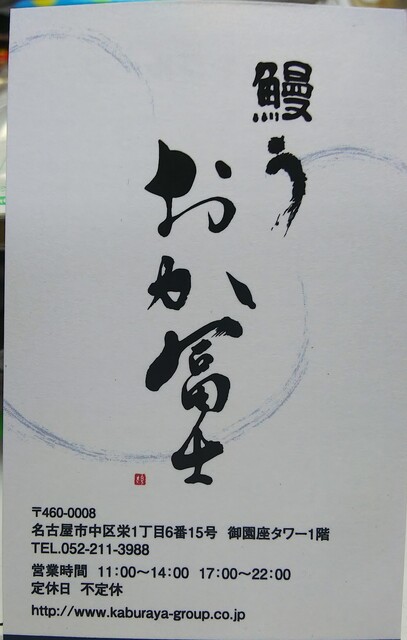 鰻
う
おか冨士
〒460-0008
名古屋市中区栄1丁目6番15号 御園座タワー1階
TEL.052-211-3988
営業時間 11:00～14:00 17:00～22:00
定休日 不定休
http://www.kaburaya-group.co.jp